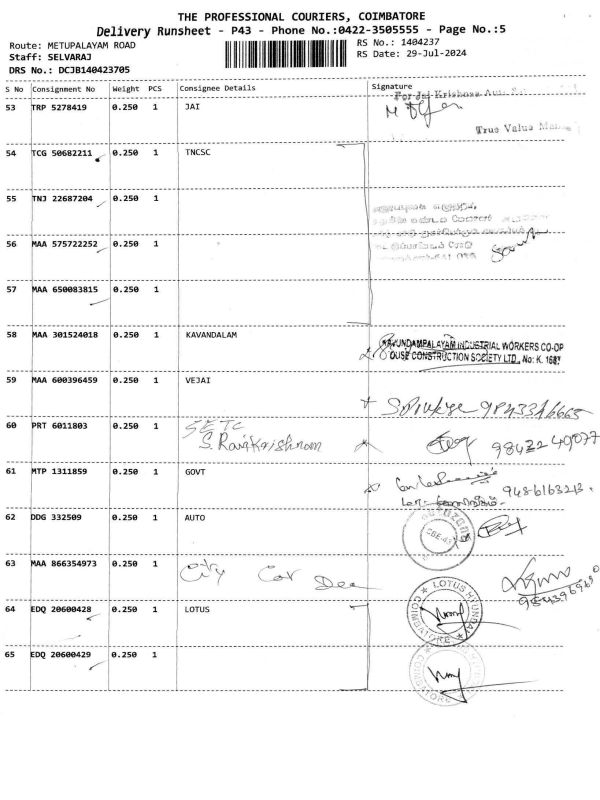 THE PROFESSIONAL COURIERS, COIMBATORE
Delivery Runsheet - P43 - Phone No.:0422-3505555 - Page No.:5
Route: METUPALAYAM ROAD
RS No.: 1404237
Staff: SELVARAJ
RS Date: 29-Jul-2024
DRS No.: DCJB140423705
S No Consignment No Weight PCS Consignee Details Signature
For Jai Krishnaa
53 TRP 5278419 0.250 1 JAI
True Value
54 TCG 50682211 0.250 1 TNCSC
55 TNJ 22687204 0.250 1
56 MAA 575722252 0.250 1
57 MAA 650083815 0.250 1
58 MAA 301524018 0.250 1 KAVANDALAM
KAVUNDAMPALAYAM INDUSTRIAL WORKERS CO-OP
HOUSE CONSTRUCTION SOCIETY LTD., No: K. 1687
59 MAA 600396459 0.250 1 VEJAI
60 PRT 6011803 0.250 1 SETC
S. Ravikrishnan
9843240077
61 MTP 1311859 0.250 1 GOVT
9486163213
62 DDG 332509 0.250 1 AUTO
63 MAA 866354973 0.250 1 City Car
64 EDQ 20600428 0.250 1 LOTUS
LOTUS HYUNDAI
COIMBATORE
65 EDQ 20600429 0.250 1
COIMBATORE